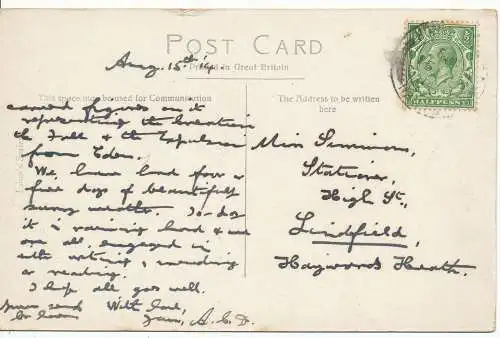 POST CARD
Aug. 15th 14.
Printed in Great Britain
This space may be used for Communication
The Address to be written
here
carved figures on it
representing the Creation
the Fall & the Expulsion
from Eden.
We have had four or
five days of beautifully
sunny weather. To-day
it is raining hard & we
are all engaged in
either writing, mending
or reading.
I hope all goes well.
With love,
Yours, A.C.D.
Miss Simmons,
Stationer,
High St.,
Lindfield,
Haywards Heath.
HALFPENNY